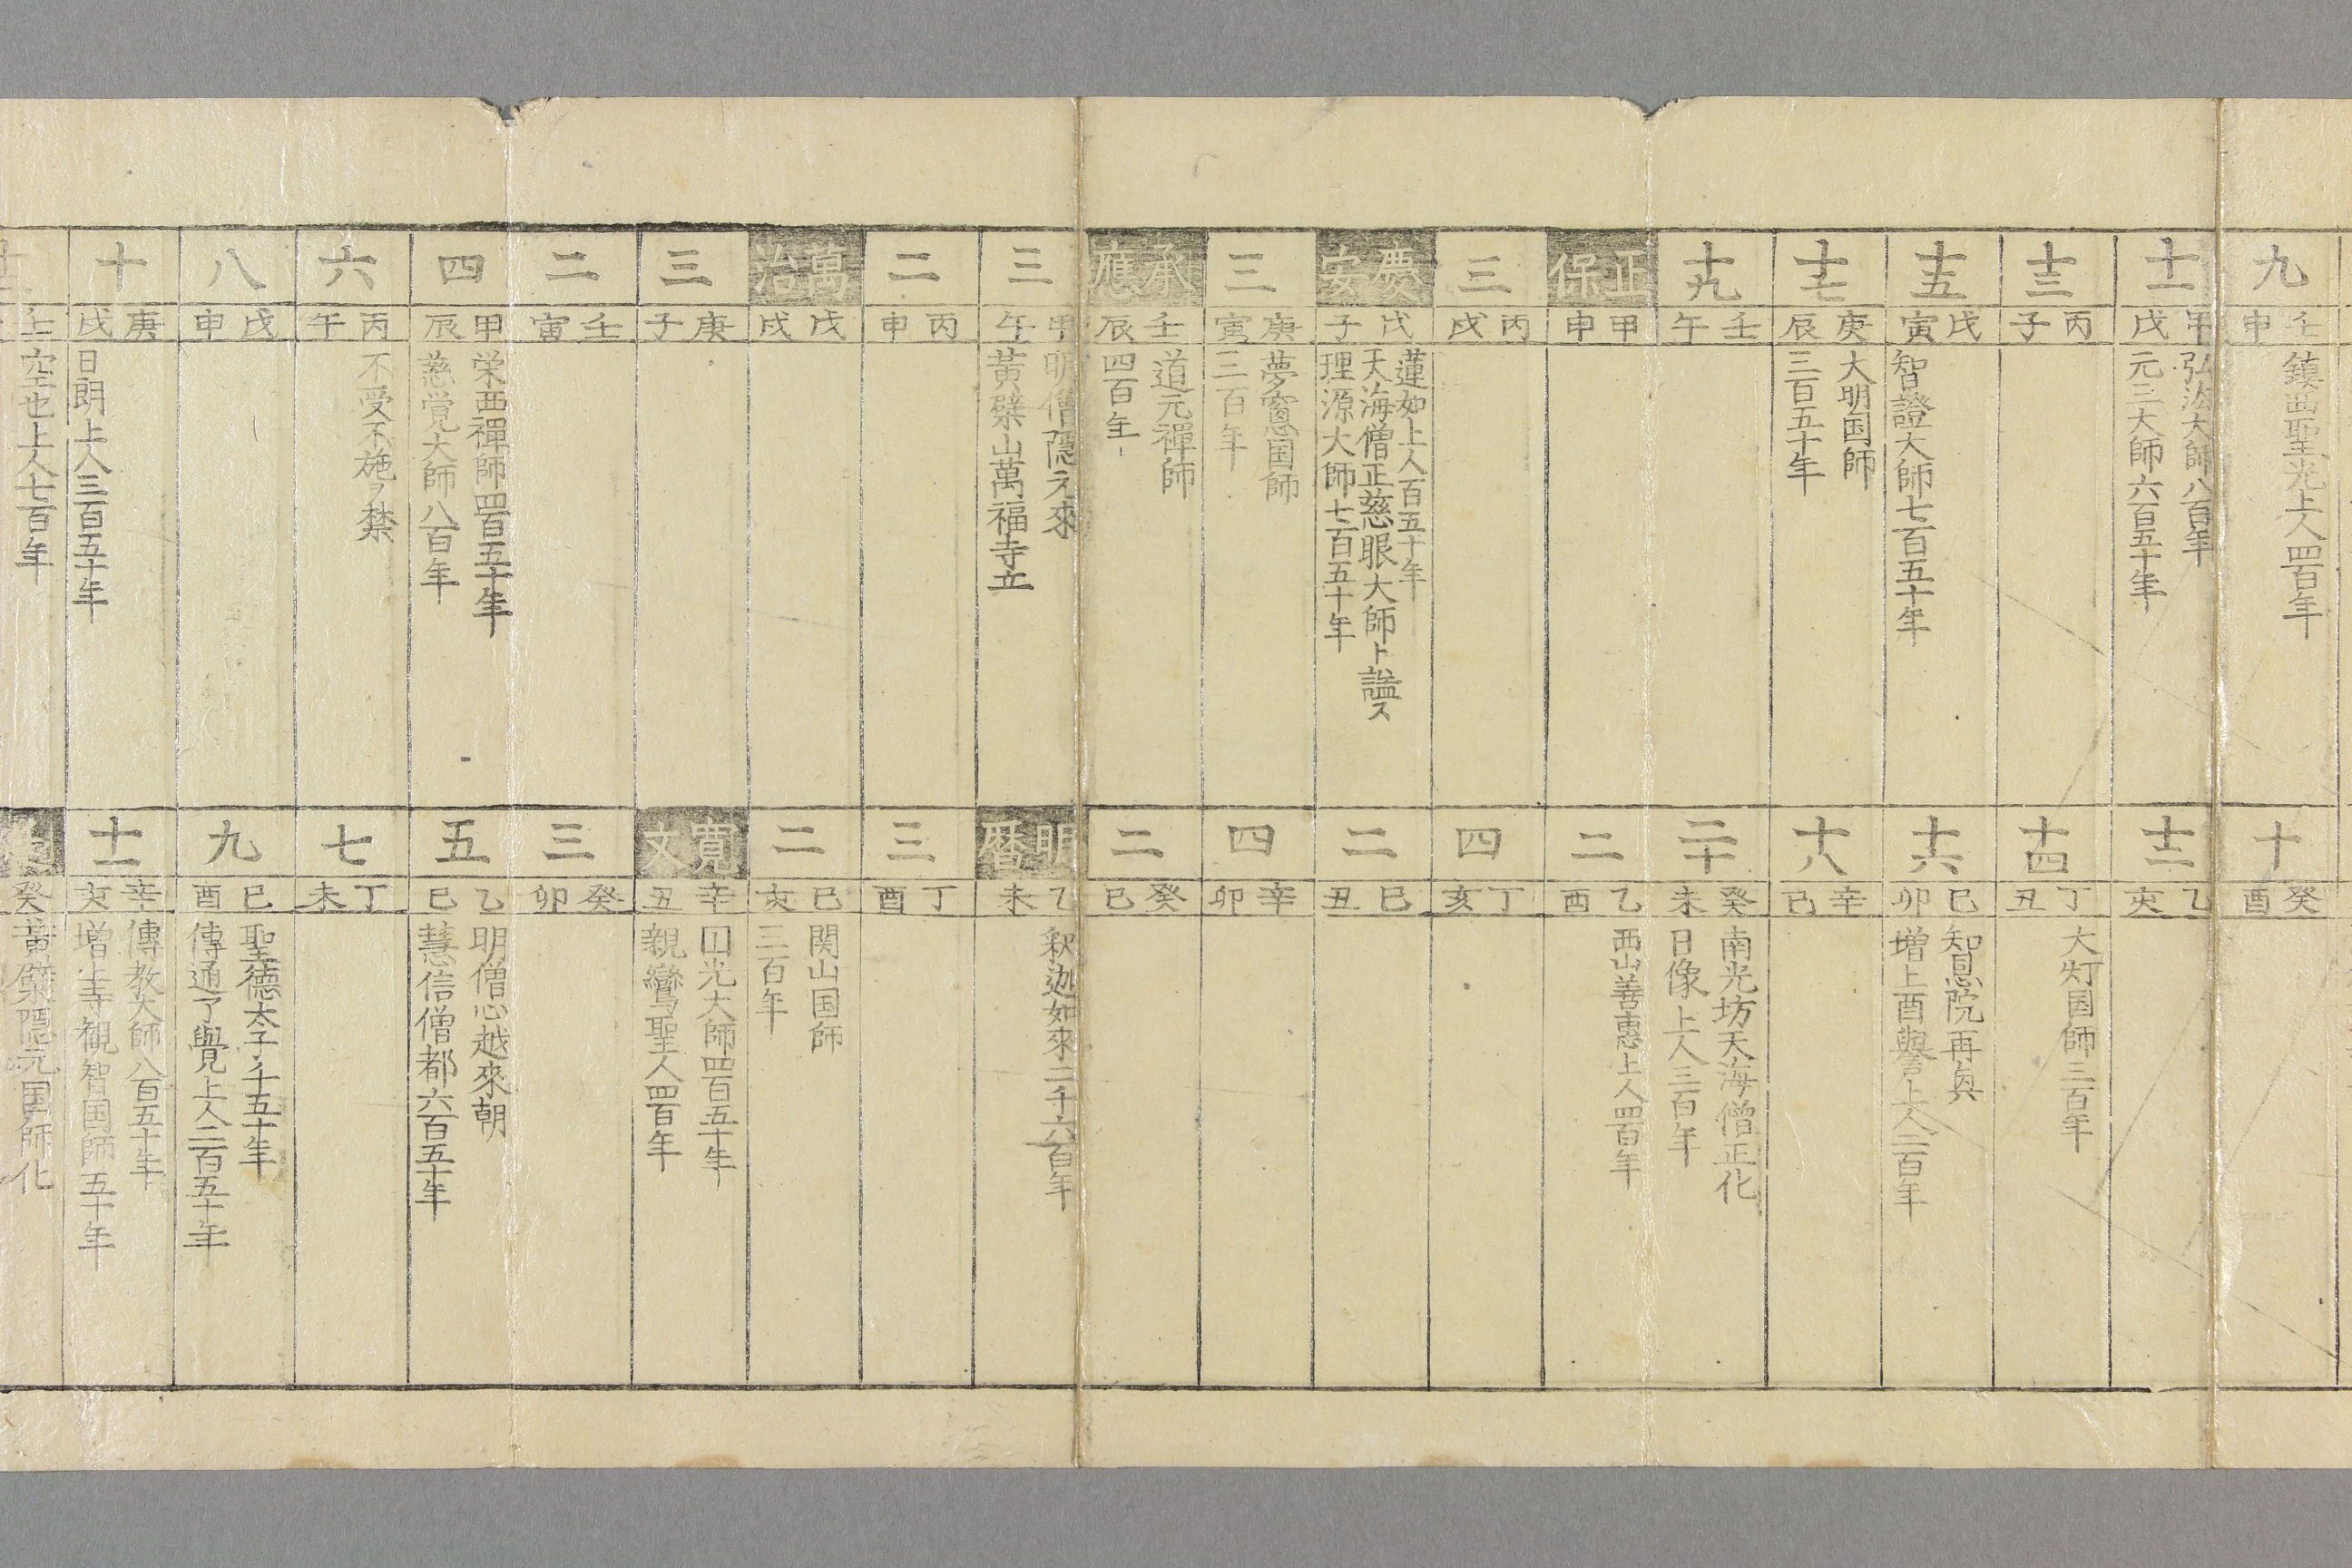 九
壬申
鎮西聖光上人四百年
十
癸酉
十一
甲戌
弘法大師八百年
元三大師六百五十年
十二
乙亥
十三
丙子
十四
丁丑
大灯国師三百年
十五
戊寅
智證大師七百五十年
十六
己卯
智恩院再興
増上酉譽上人二百年
十七
庚辰
大明国師
三百五十年
十八
辛巳
十九
壬午
二十
癸未
南光坊天海僧正化
日像上人三百年
正保
甲申
二
乙酉
西山善惠上人四百年
三
丙戌
四
丁亥
慶安
戊子
蓮如上人百五十年
天海僧正慈眼大師ト謚ス
理源大師七百五十年
二
己丑
三
庚寅
夢窓国師
三百年
四
辛卯
承應
壬辰
道元禪師
四百年
二
癸巳
三
甲午
明僧隱元來
黄檗山萬福寺立
明暦
乙未
釈迦如來二千六百年
二
丙申
三
丁酉
萬治
戊戌
二
己亥
関山国師
三百年
三
庚子
寛文
辛丑
円光大師四百五十年
親鸞聖人四百年
二
壬寅
三
癸卯
四
甲辰
栄西禪師四百五十年
慈覚大師八百年
五
乙巳
明僧心越來朝
慧信僧都六百五十年
六
丙午
不受不施ヲ禁
七
丁未
八
戊申
九
己酉
聖德太子千五十年
傳通了覺上人二百五十年
十
庚戌
日朗上人三百五十年
十一
辛亥
傳教大師八百五十年
増上寺観智国師五十年
壬
空也上人七百年
癸
黄檗隱元国師化